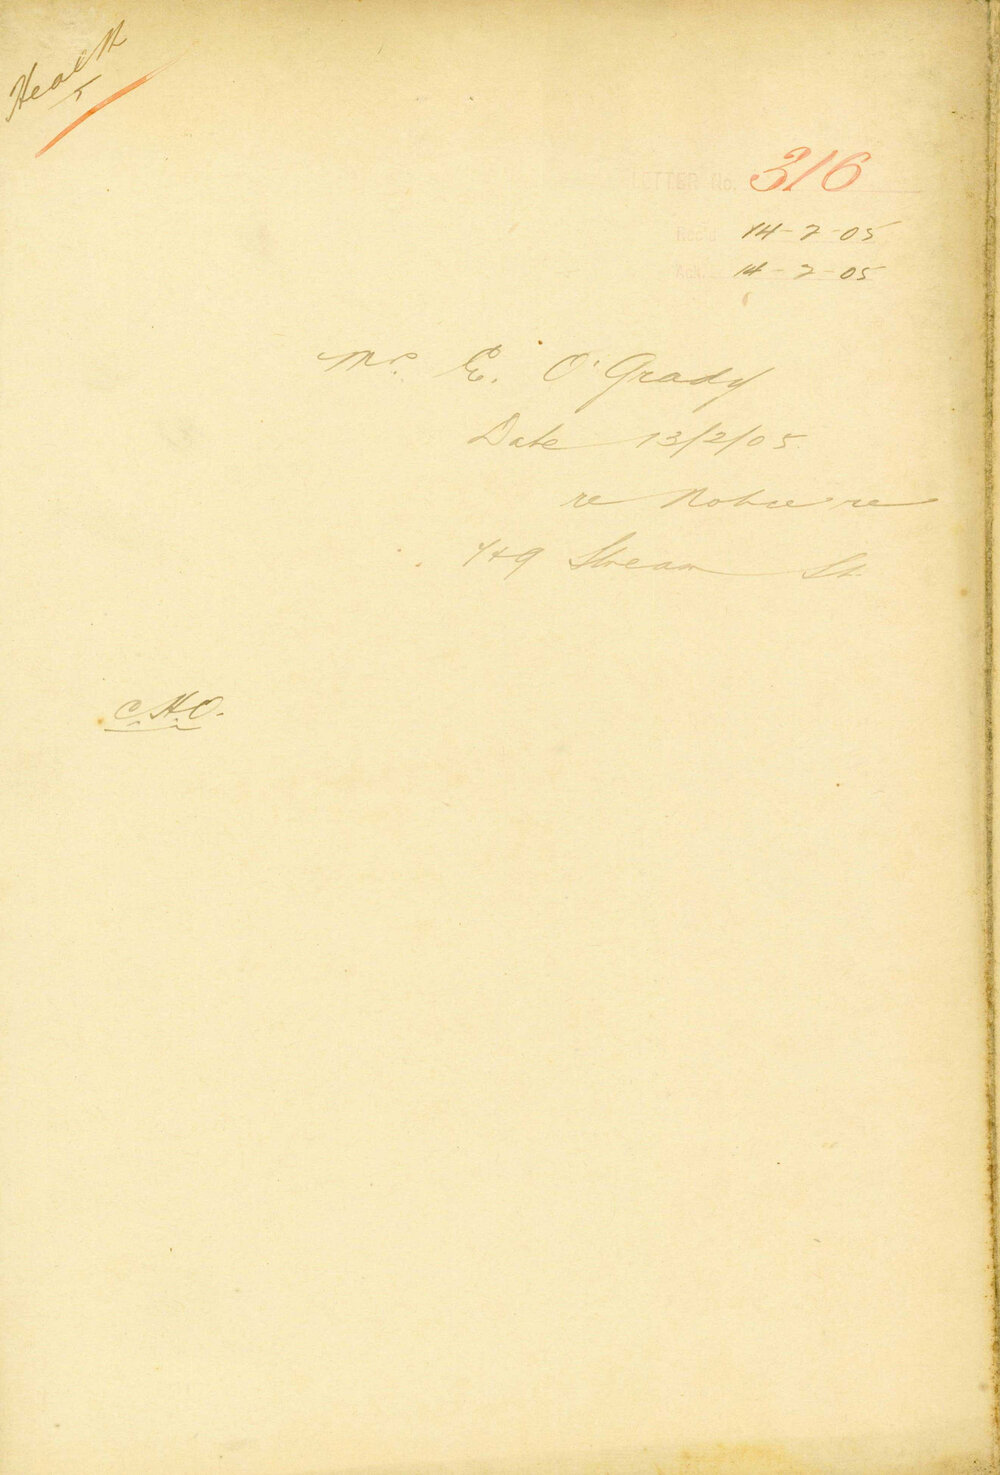 Health
5
LETTER No. 316
Rec'd 14-2-05
Ack. 14-2-05
Mr. E. O'Grady
Date 13/2/05
re Notice re
7 & 9 Stream St.
C.H.O.